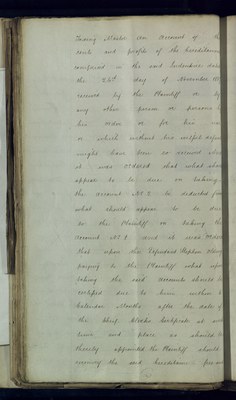 Taxing Master an Account of the
rents and profits of the hereditaments
comprised in the said Indenture dated
the 26th day of November
received by the Plaintiff or by
any other person or persons by
his order or for his use
or which without his wilful default
might have been so received
it was ordered that what should
appear to be due on taking
the account No 2 be deducted from
what should appear to be due
to the Plaintiff on taking the
account No 1 and it was
that upon the Defendant Stephen
paying to the Plaintiff what upon
taking the said accounts should be
certified due to him within
Calendar Months after the date of
the Chief Clerks Certificate at such
time and place as should be
thereby appointed the Plaintiff should
reconvey the said hereditaments free